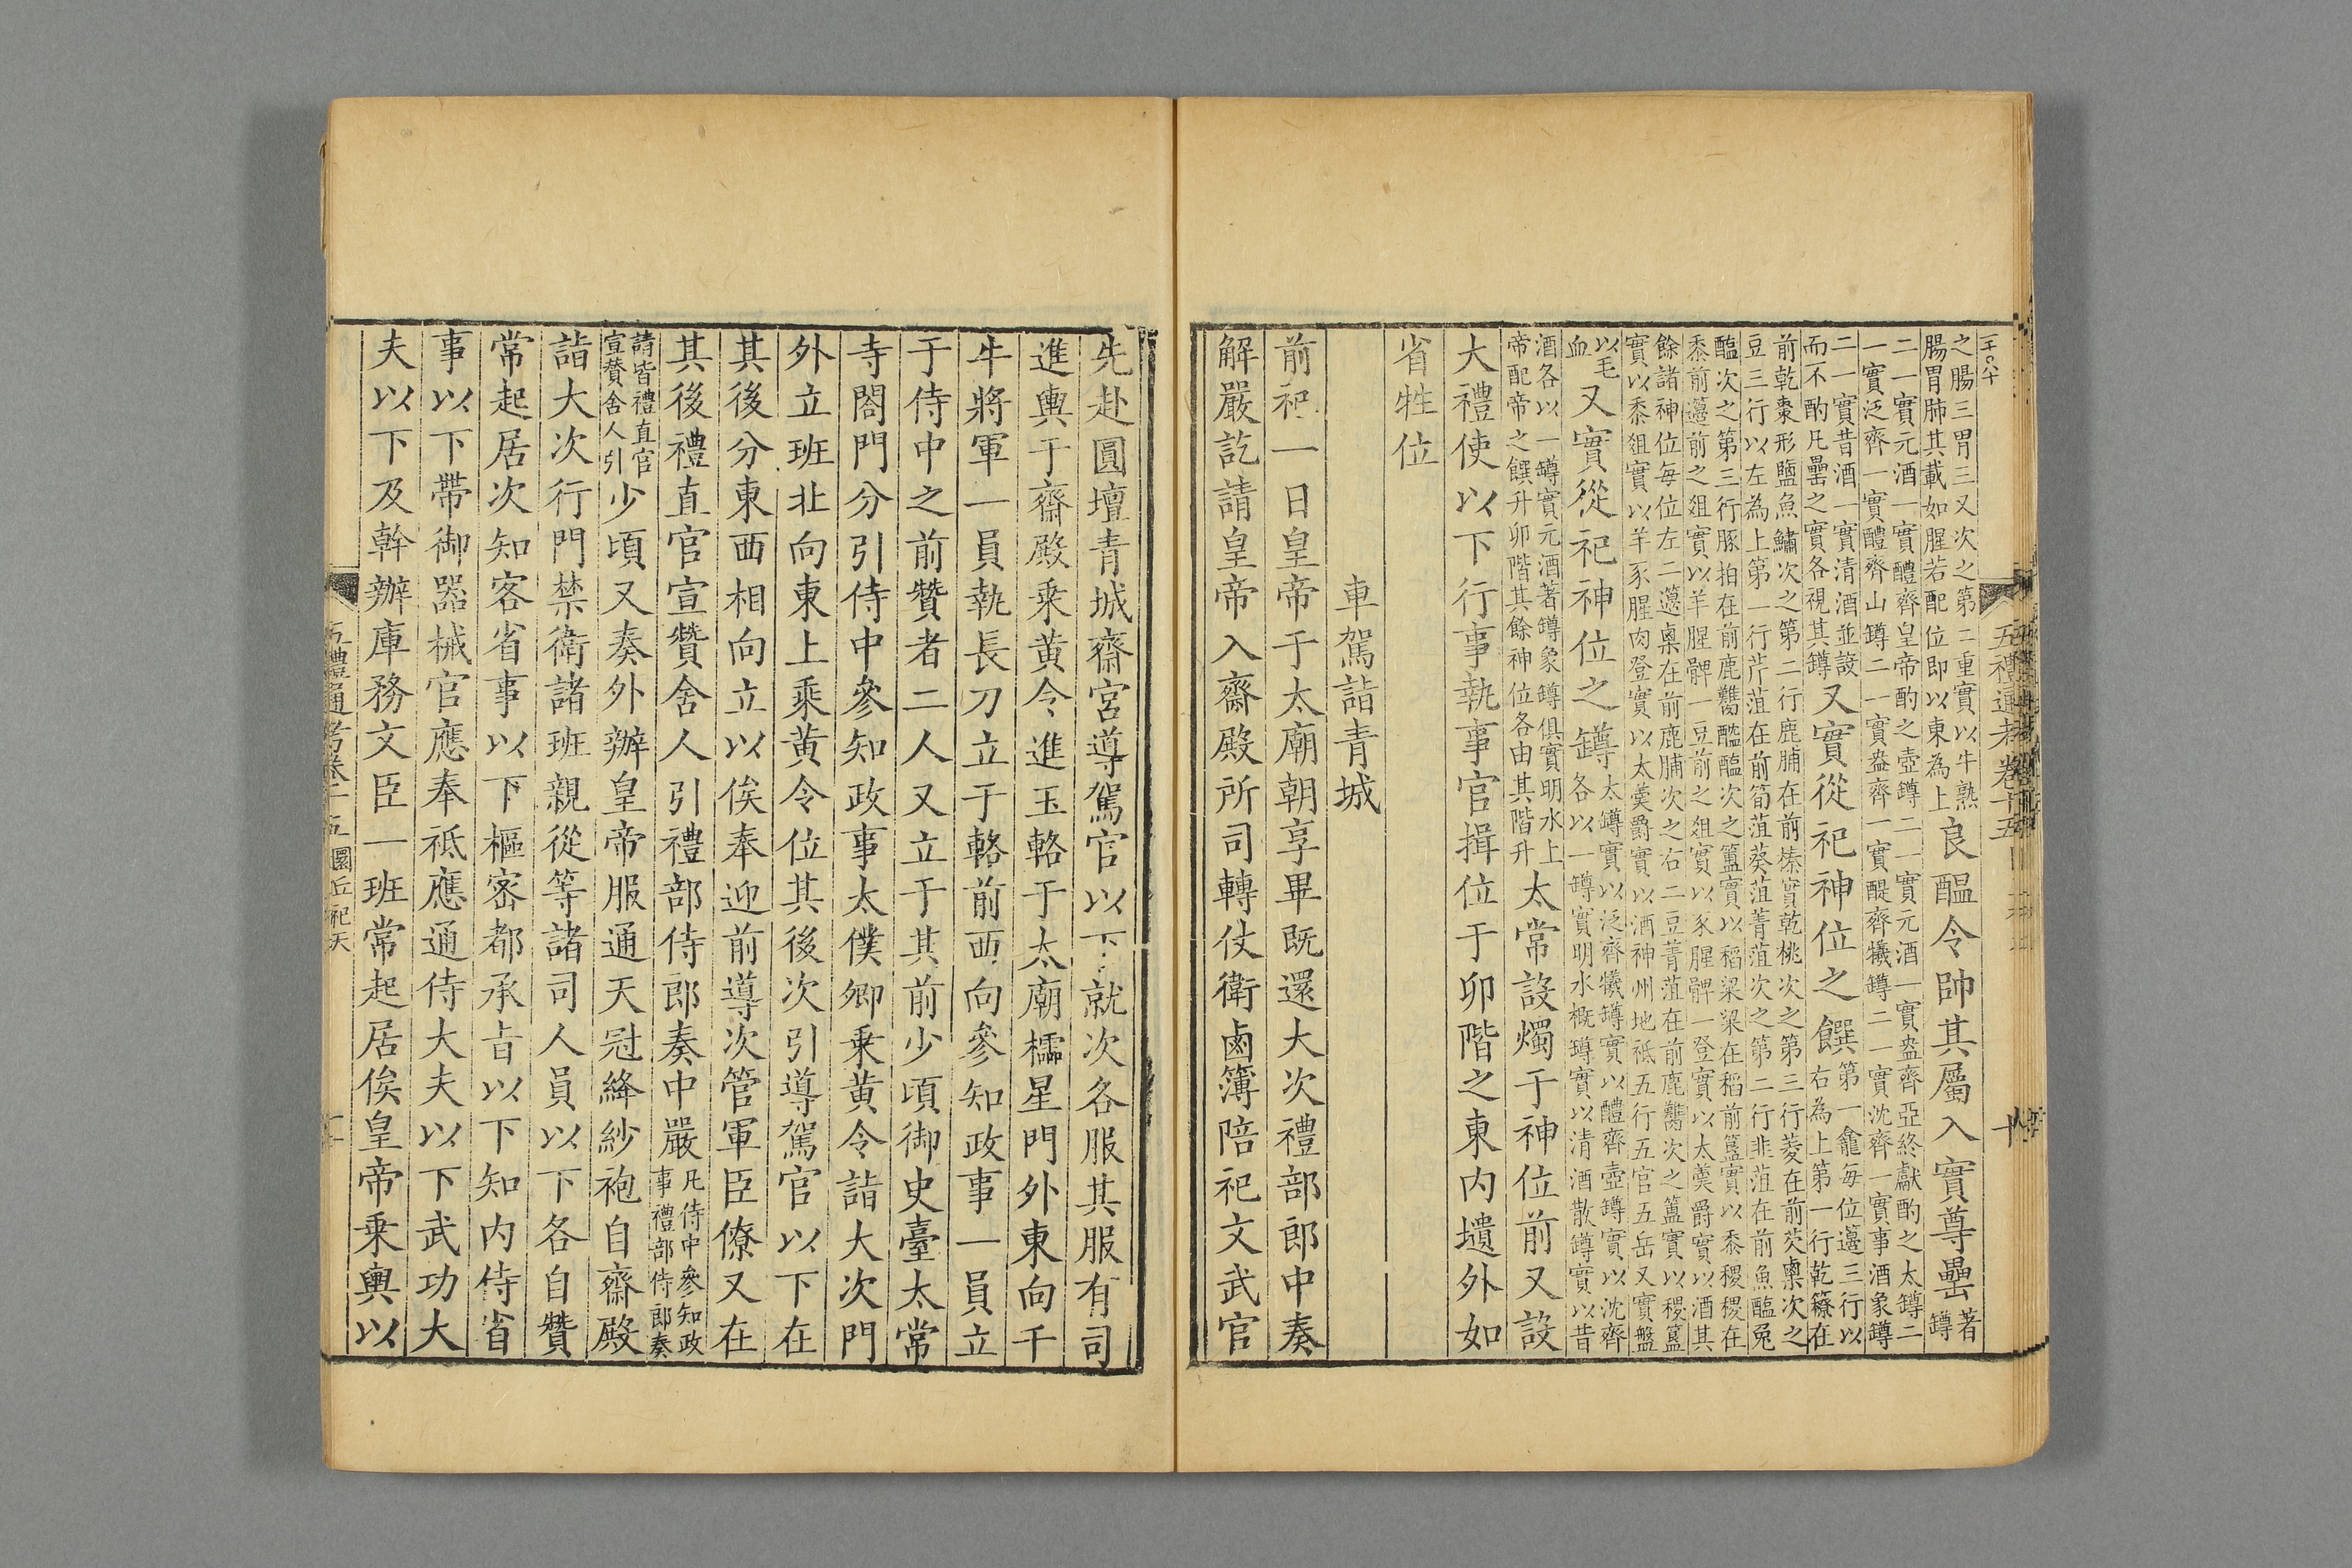 五禮通考卷十五
之腸三胃三又次之第二重實以牛熟
腸胃肺其載如腥若配位即以東為上
良醞令帥其屬入實尊罍著罇
二一實元酒一實醴齊皇帝酌之壺罇二一實元酒一實盎齊亞終獻酌之太罇二
一實泛齊一實醴齊山罇二一實盎齊一實醍齊犧罇二一實沈齊一實事酒象罇
二一實昔酒一實清酒並設
而不酌凡罍之實各視其罇
又實從祀神位之饌
第一龕每位籩三行以
右為上第一行乾䕩在
前乾棗形鹽魚鱐次之第二行鹿脯在前榛實乾桃次之第三行菱在前芡㮚次之
豆三行以左為上第一行芹菹在前筍菹葵菹菁菹次之第二行韭菹在前魚醢兔
醢次之第三行豚拍在前鹿臡醓醢次之簠實以稻粱粱在稻前簋實以黍稷稷在
黍前籩前之俎實以羊腥髀一豆前之俎實以豕腥髀一登實以太羹爵實以酒其
餘諸神位每位左二籩㮚在前鹿脯次之右二豆菁菹在前鹿臡次之簠實以稷簋
實以黍俎實以羊豕腥肉登實以太羹爵實以酒神州地祗五行五官五岳又實盤
以毛
血
又實從祀神位之罇
太罇實以泛齊犧罇實以醴齊壺罇實以沈齊
各以一罇實明水概罇實以清酒散罇實以昔
酒各以一罇實元酒著罇象罇俱實明水上
帝配帝之饌升卯階其餘神位各由其階升
太常設燭于神位前又設
大禮使以下行事執事官揖位于卯階之東內壝外如
省牲位
車駕詣青城
前祀一日皇帝于太廟朝享畢既還大次禮部郎中奏
解嚴訖請皇帝入齋殿所司轉仗衛鹵簿陪祀文武官
先赴圓壇青城齋宮導駕官以下就次各服其服有司
進輿于齋殿乘黃令進玉輅于太廟櫺星門外東向千
牛將軍一員執長刀立于輅前西向參知政事一員立
于侍中之前贊者二人又立于其前少頃御史臺太常
寺閤門分引侍中參知政事太僕卿乘黃令詣大次門
外立班北向東上乘黃令位其後次引導駕官以下在
其後分東西相向立以俟奉迎前導次管軍臣僚又在
其後禮直官宣贊舍人引禮部侍郎奏中嚴凡侍中參知政
事禮部侍郎奏
請皆禮直官
宣贊舍人引
少頃又奏外辦皇帝服通天冠絳紗袍自齋殿
詣大次行門禁衛諸班親從等諸司人員以下各自贊
常起居次知客省事以下樞密都承旨以下知內侍省
事以下帶御器械官應奉祗應通侍大夫以下武功大
夫以下及幹辦庫務文臣一班常起居俟皇帝乘輿以
五禮通考卷十五 圜丘祀天